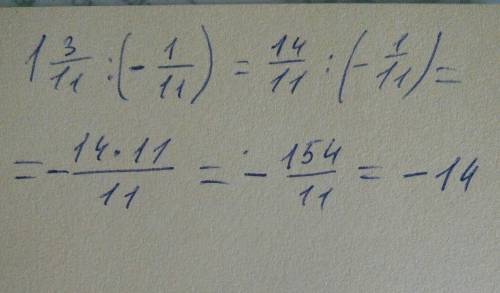 1 3/11 : (- 1/11) = 14/11 : (- 1/11) =
= - 14·11/11 = - 154/11 = - 14